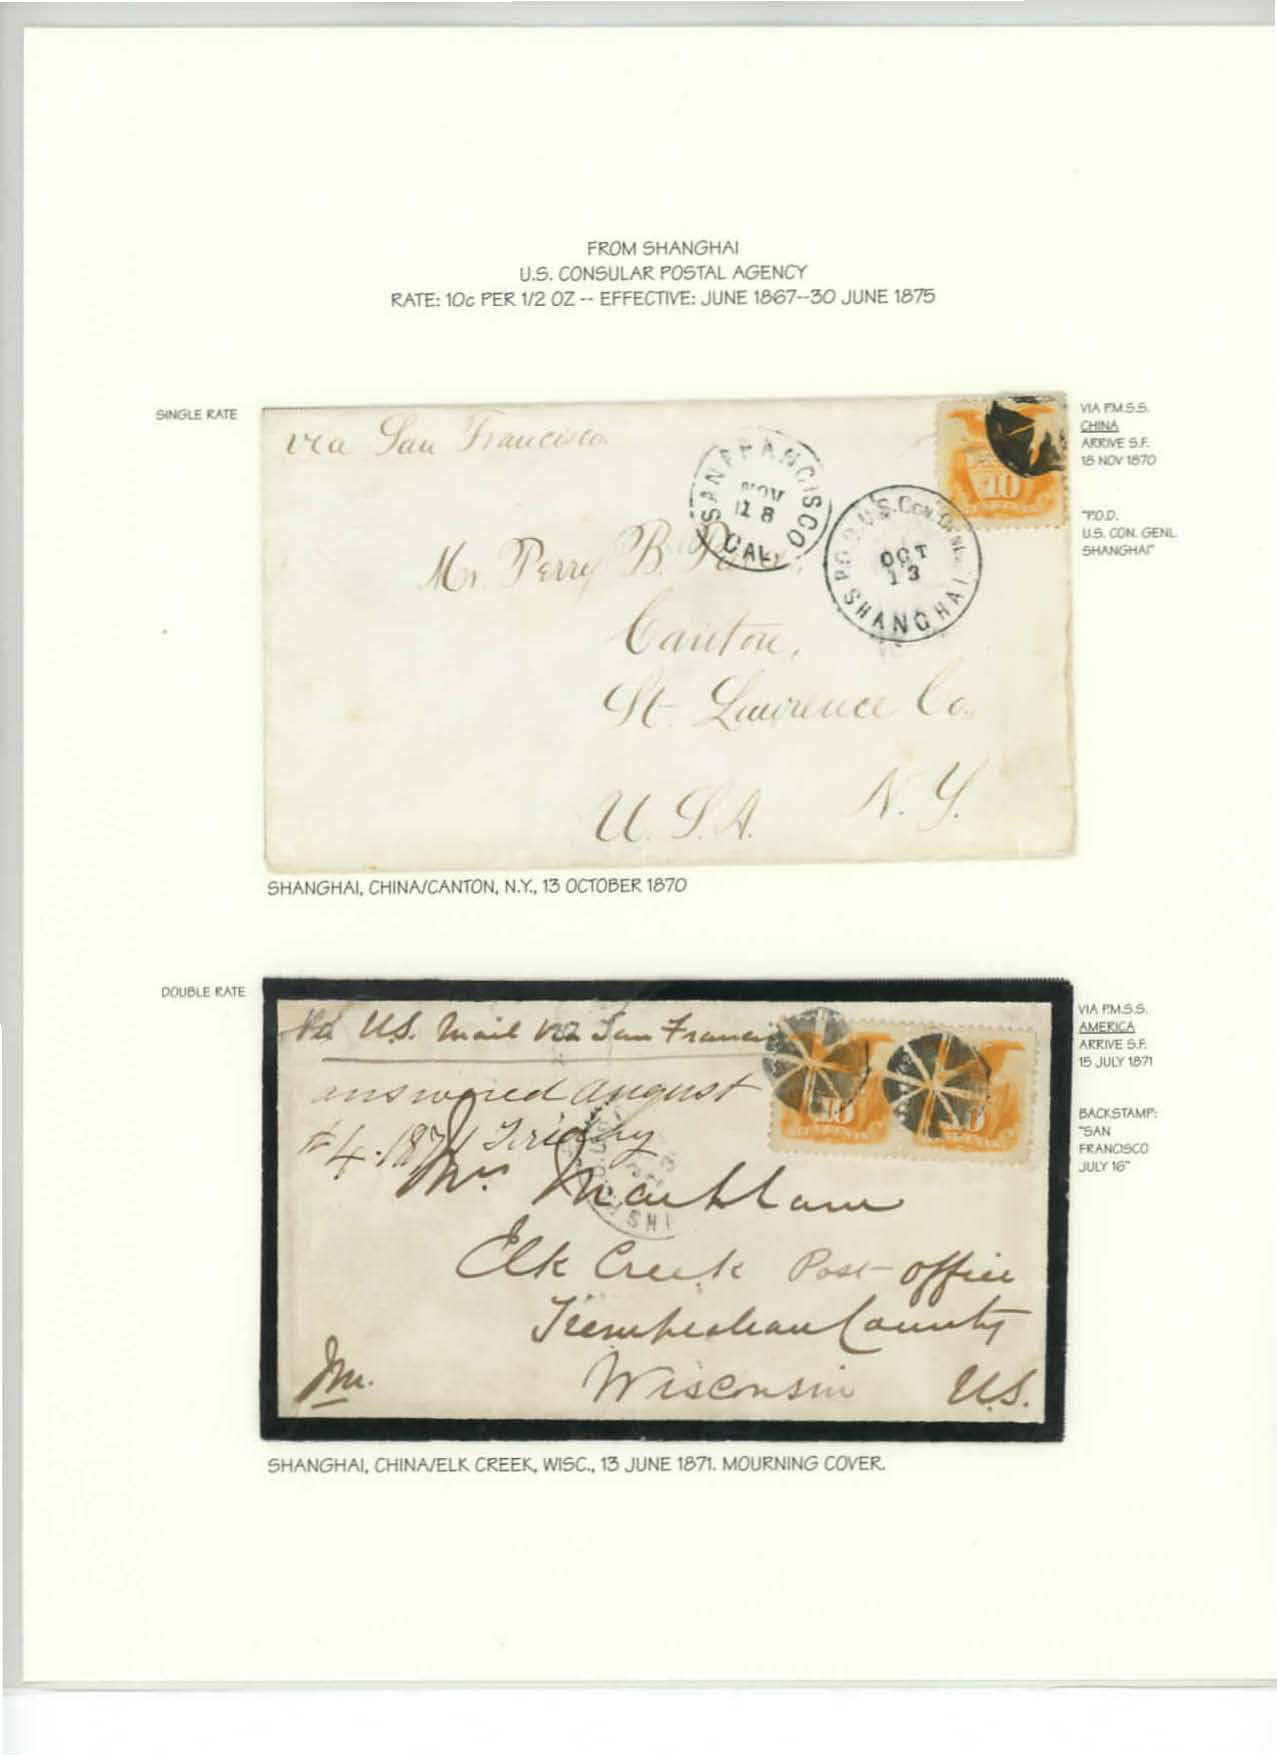 FROM SHANGHAI
U.S. CONSULAR POSTAL AGENCY
RATE: 10c PER 1/2 OZ -- EFFECTIVE: JUNE 1867--30 JUNE 1875
SINGLE RATE
via San Francisco
SAN FRANCISCO
NOV
18
CAL.
P.O.D. U.S. CON. GENL.
OCT
13
SHANGHAI
10
Mr Perry B.
Canton,
St. Lawrence Co.,
N.Y.
U.S.A.
VIA P.M.S.S.
CHINA
ARRIVE S.F.
18 NOV 1870
"P.O.D.
U.S. CON. GENL.
SHANGHAI"
SHANGHAI, CHINA/CANTON, N.Y., 13 OCTOBER 1870
DOUBLE RATE
Via U.S. Mail via San
answered august
4. 1871 Friday
10
Mrs Markham
Elk Creek Post-office
County
Wisconsin U.S.
VIA P.M.S.S.
AMERICA
ARRIVE S.F.
15 JULY 1871
BACKSTAMP:
"SAN
FRANCISCO
JULY 16"
SHANGHAI, CHINA/ELK CREEK, WISC., 13 JUNE 1871. MOURNING COVER.